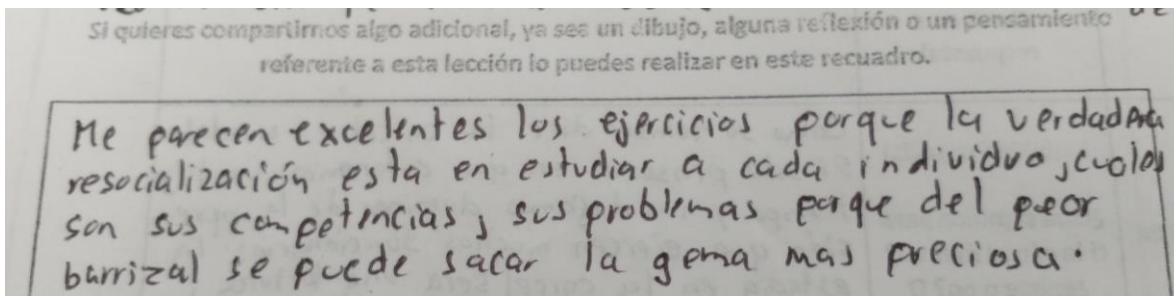 Si quieres compartirnos algo adicional, ya sea un dibujo, alguna reflexión o un pensamiento
referente a esta lección lo puedes realizar en este recuadro.
Me parecen excelentes los ejercicios porque la verdadera
resocialización esta en estudiar a cada individuo, cuales
son sus competencias, sus problemas porque del peor
barrizal se puede sacar la gema mas preciosa.